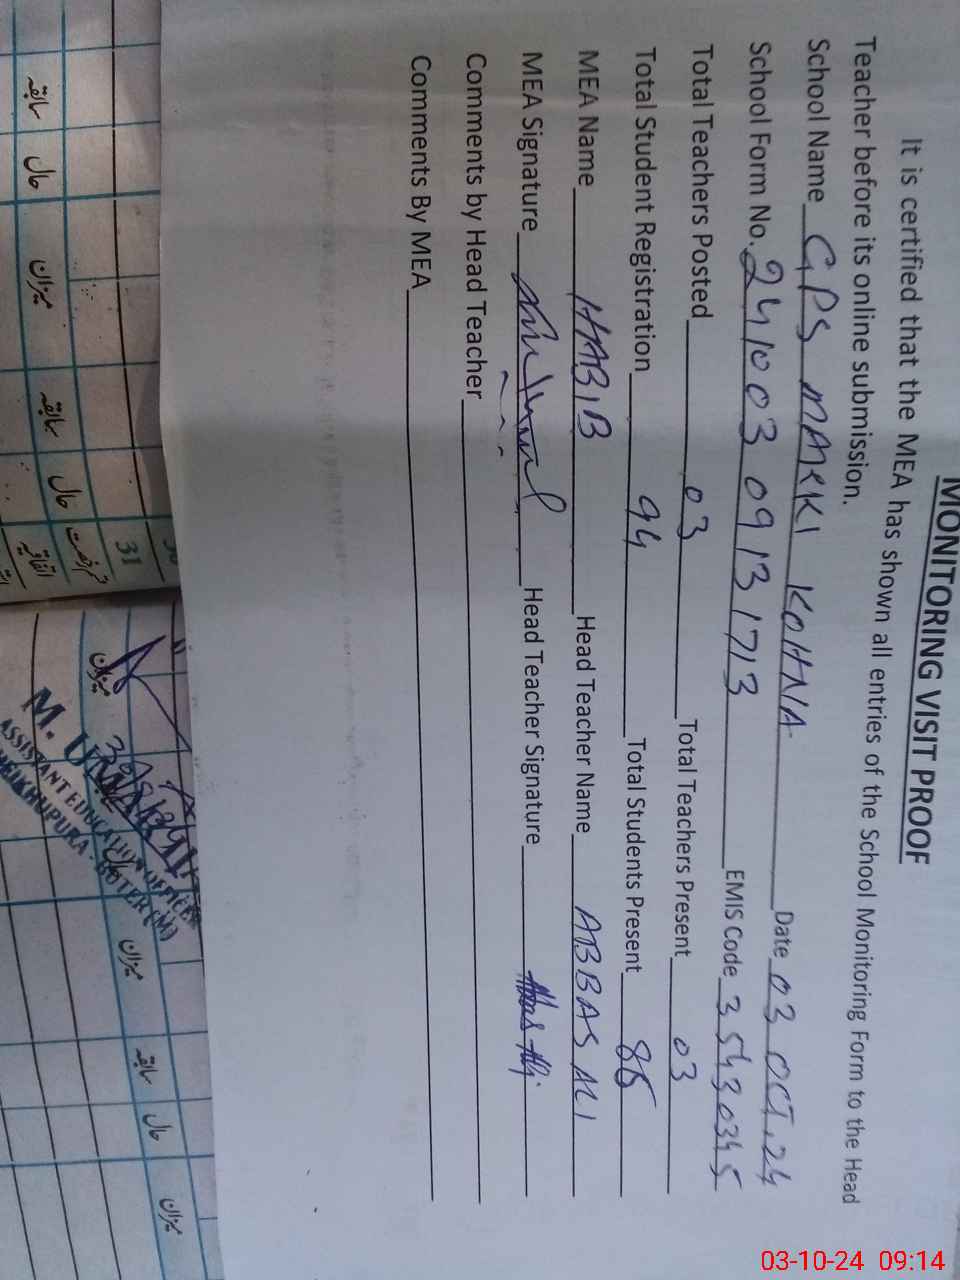 MONITORING VISIT PROOF
It is certified that the MEA has shown all entries of the School Monitoring Form to the Head
Teacher before its online submission.
School Name GPS MAKKI KOHNA Date 03 OCT, 24
School Form No. 241003 0913 1713 EMIS Code 35430345
Total Teachers Posted 03 Total Teachers Present 03
Total Student Registration 94 Total Students Present 86
MEA Name HABIB Head Teacher Name ABBAS ALI
MEA Signature Head Teacher Signature Abbas Ali
Comments by Head Teacher
Comments By MEA
31
سابقہ حال میزان سابقہ حال
میزان
M.
ASSISTANT EDUCATION OFFICER
SHEIKHUPURA
میزان سابقہ حال میزان
03-10-24 09:14